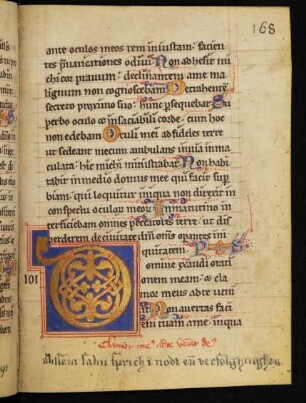 168
ante oculos meos rem iniustam: facien
tes p̄uaricationes odiui Non adhesit mi
chi cor prauum: declinantem a me ma
lignum non cognoscebam Detrahentē
secreto proximo suo: hunc ꝑsequebar Su
perbo oculo ⁊ insaciabili corde: cum hoc
non edebam Oculi mei ad fideles terre
ut sedeant mecum ambulans in uia inma
culata: hic michi ministrabat Non habi
tabit in medio domus mee qui facit supͥ
biam: qui loquitur iniqua non direxit in
conspectu oculorum meorum In matutino in
terficiebam omnes peccatores terre: ut dis
perderem de ciuitate dn̄i om̄s opantes ini
quitatem
101
omine exaudi orati
onem meam: ⁊ cla
mor meus ad te ueni
at Non auertas faci
em tuam a me: in qua